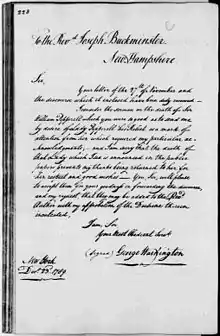 223
To the Rev.d Joseph Buckminster
New Hampshire
Sir,
Your letter of the 27th of November and
the discourse which it enclosed have been duly received —
I consider the sermon on the death of Sir
William Pepperell which you were so good as to send me
by desire of Lady Pepperell his Relict, as a mark of
attention from her which required my particular ac-
knowledgments; and I am sorry that the death of
that Lady which I see is announced in the public
papers prevents my thanks being returned to her for
her respect and good wishes — You, Sir, will please
to accept them for your goodness in forwarding the sermon,
and my request, that they may be added to the Rev.d
Author with my approbation of the Doctrine therein
inculcated.
I am Sir
Your Most Obedient Serv.t
(signed) George Washington
New York
Dec.r 23.d 1789